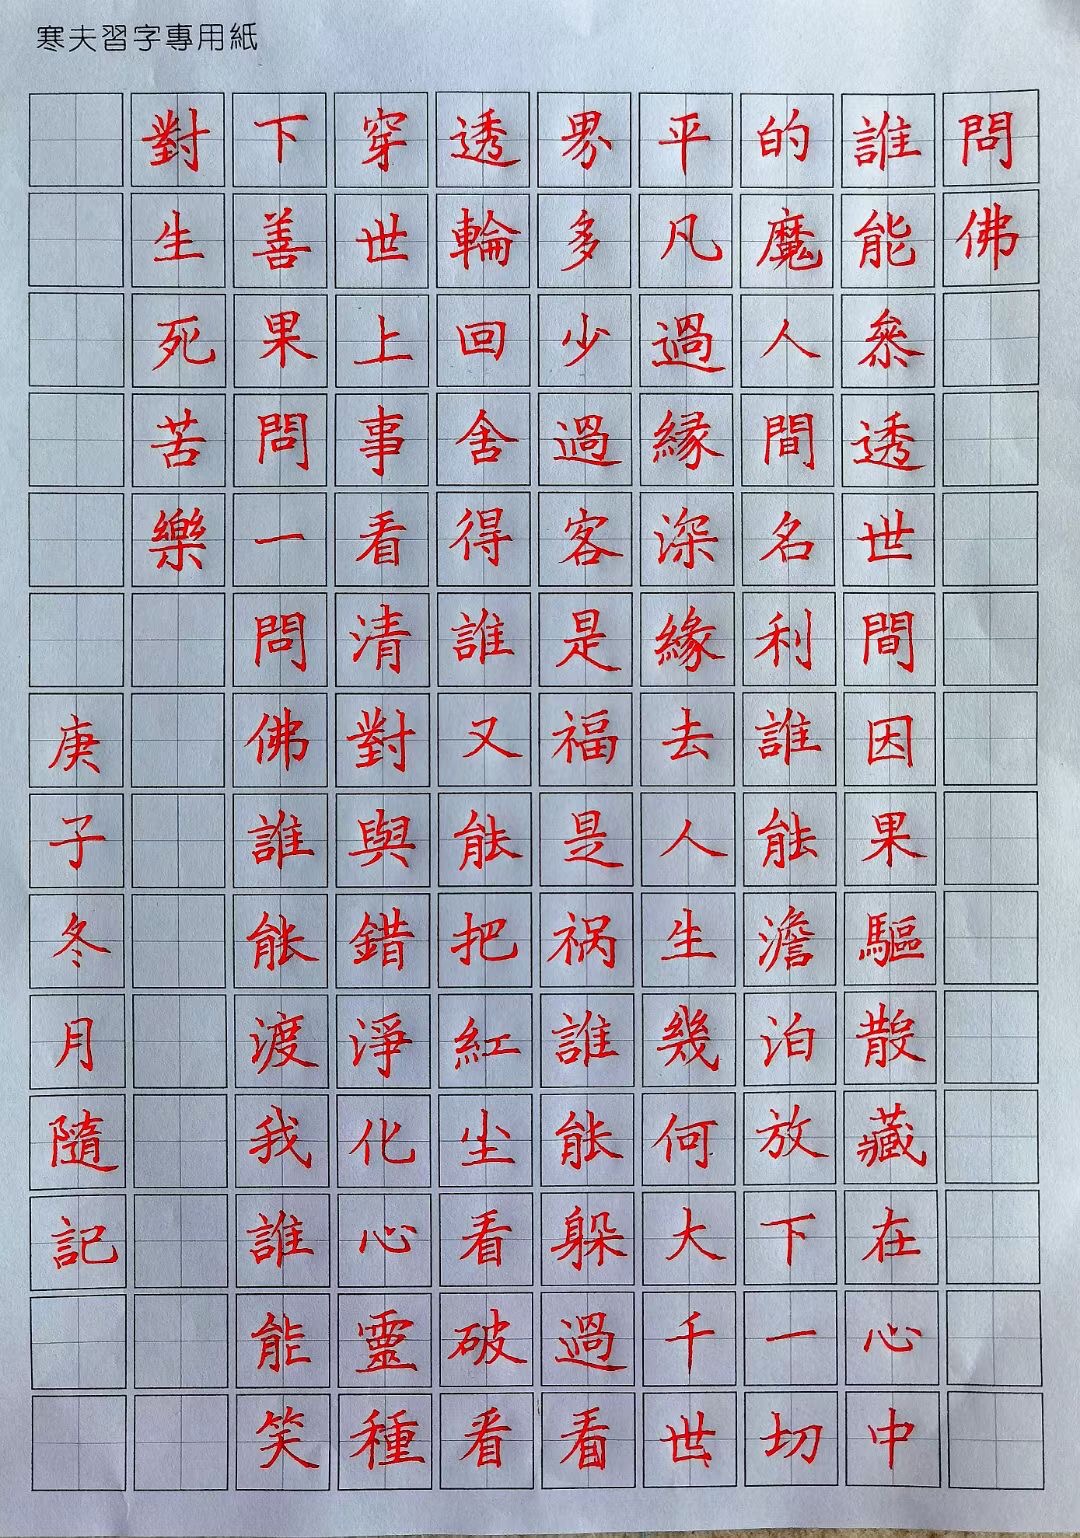 寒夫習字專用紙
問佛
誰能叅透世間因果驅散藏在心中
的魔人間名利誰能澹泊放下一切
平凡過緣深緣去人生幾何大千世
界多少過客是福是祸誰能躲過看
透輪回舍得誰又能把紅尘看破看
穿世上事看清對與錯淨化心靈種
下善果問一問佛誰能渡我誰能笑
對生死苦樂
庚子冬月隨記